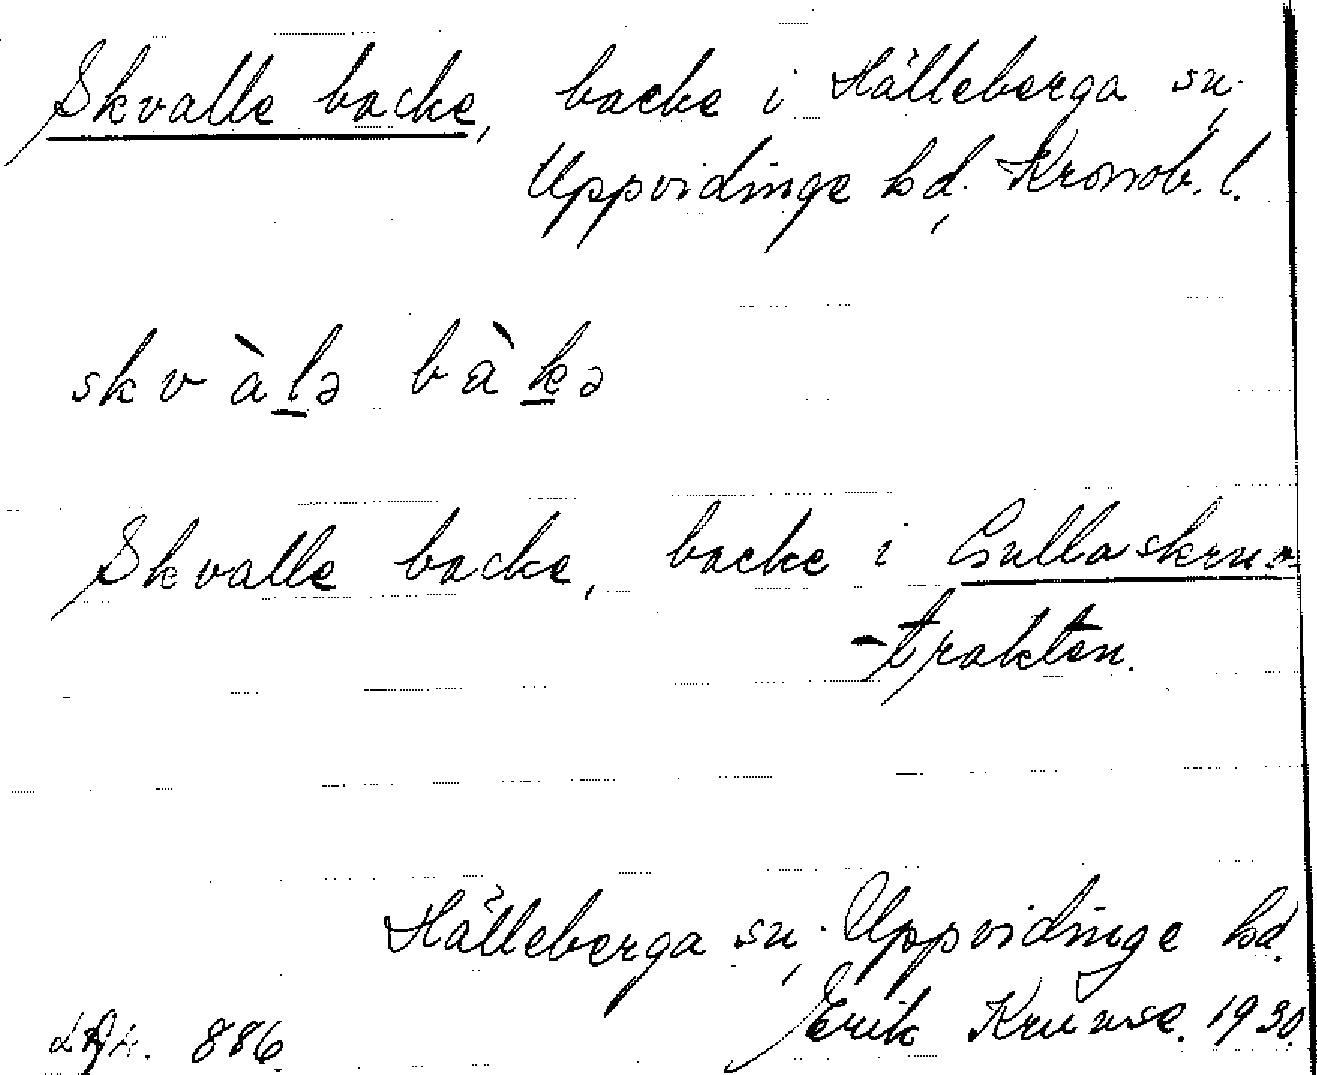 Skvalle backe, backe i Hälleberga sn,
Uppvidinge hd, Kronob. l.
skvàlə bàkə
Skvalle backe, backe i Gullaskruv
-trakten.
Hälleberga sn, Uppvidinge hd.
Erik Kruuse. 1930.
886.